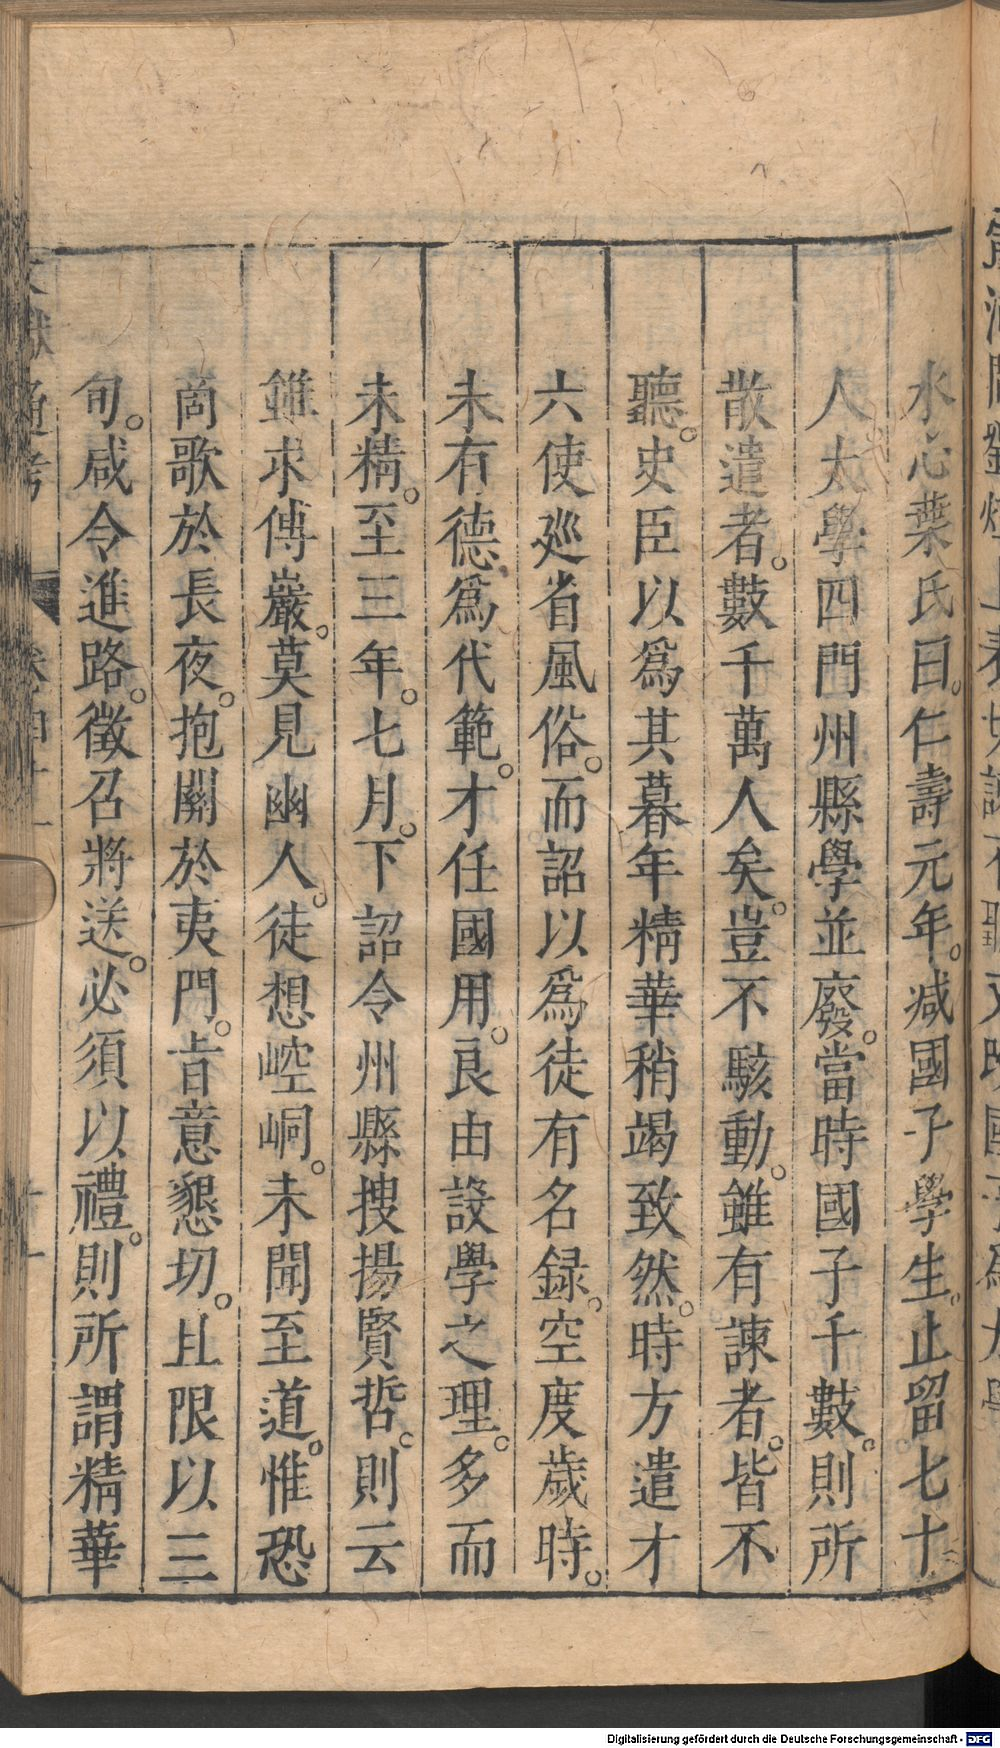 水心葉氏曰。仁壽元年。减國子學生。止留七十
人太學四門州縣學並廢。當時國子千數。則所
散遣者。數千萬人矣。豈不駭動。雖有諫者。皆不
聽。史臣以爲其暮年精華稍竭致然。時方遣才
六使廵省風俗。而詔以爲徒有名録。空度歲時。
未有德爲代範。才任國用。良由設學之理。多而
未精。至三年。七月。下詔令州縣搜揚賢哲。則云
雖求傅巖。莫見幽人。徒想崆峒。未聞至道。惟恐
商歌於長夜。抱關於夷門。㫖意懇切。且限以三
旬。咸令進路。徵召將送。必須以禮。則所謂精華
文獻通考
Digitalisierung gefördert durch die Deutsche Forschungsgemeinschaft - DFG